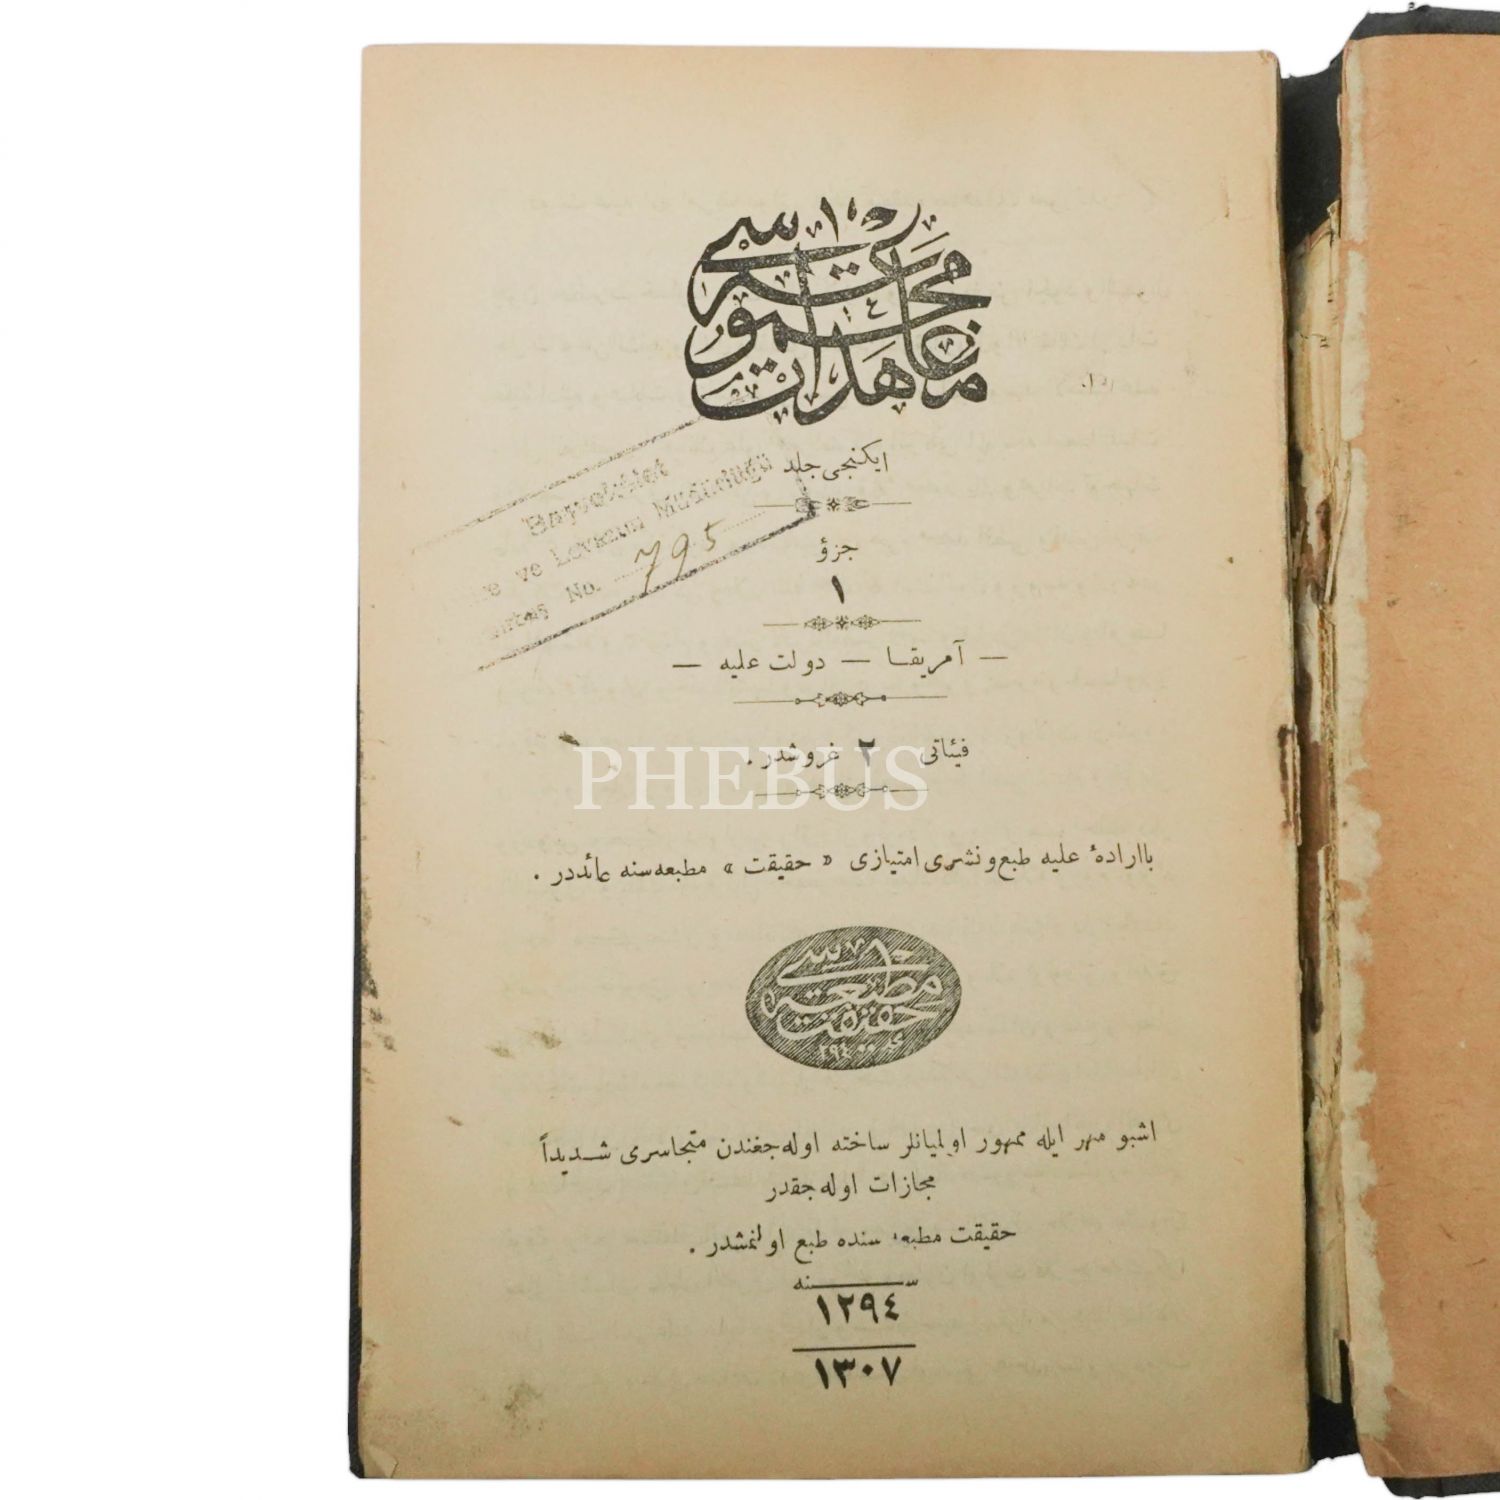 معاهدات مجموعه سی
ایکنجی جلد
جزؤ
١
— آمریقا — دولت علیه —
فیئاتی ٢ غروشدر .
باارادهٔ علیه طبع و نشری امتیازی « حقیقت » مطبعه سنه عائددر .
حقیقت مطبعه سی
٢٩٤
اشبو مهر ایله ممهور اولمیانلر ساخته اوله جغندن متجاسری شدیداً
مجازات اوله جقدر
حقیقت مطبعه سنده طبع اولنمشدر .
سنه
١٢٩٤
١٣٠٧
Başvekâlet
ve Levazım Müdürlüğü
No. 795
PHEBUS